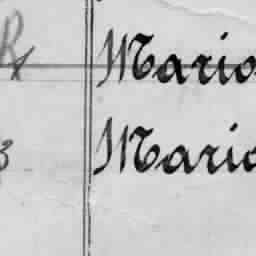 R Mario
3 Mario